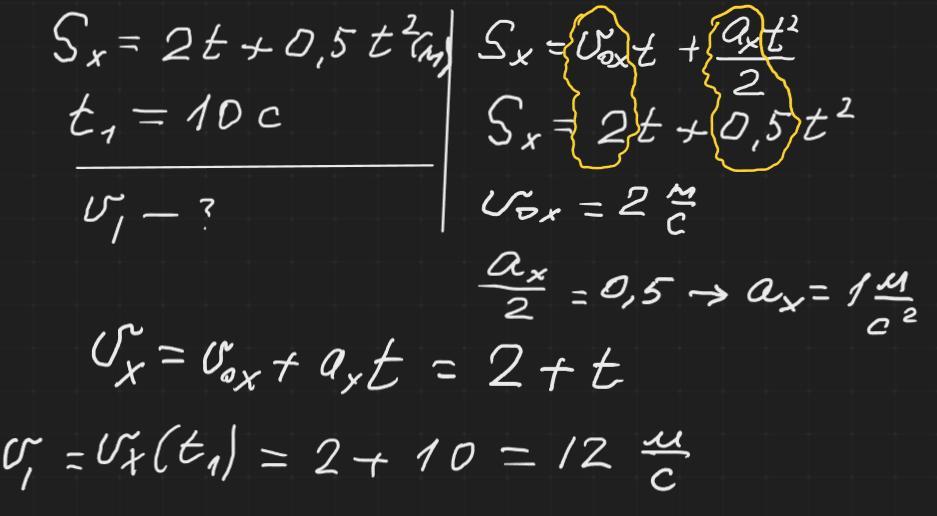 Sₓ = 2t + 0,5 t² (м)
t₁ = 10 с
υ₁ — ?
Sₓ = υ₀ₓt + aₓt²/2
Sₓ = 2t + 0,5 t²
υ₀ₓ = 2 м/с
aₓ/2 = 0,5 → aₓ = 1 м/с²
υₓ = υ₀ₓ + aₓt = 2 + t
υ₁ = υₓ(t₁) = 2 + 10 = 12 м/с